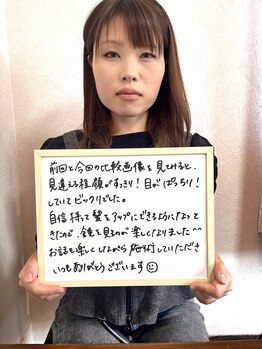 前回と今回の比較画像を見てみると、
見違える程顔がすっきり!目がぱっちり!
していてビックリでした。
自信持って髪をアップにできるようになって
きたので、鏡を見るのが楽しくなりました^^
お話も楽しくしながら施術していただき
いつもありがとうございます☺